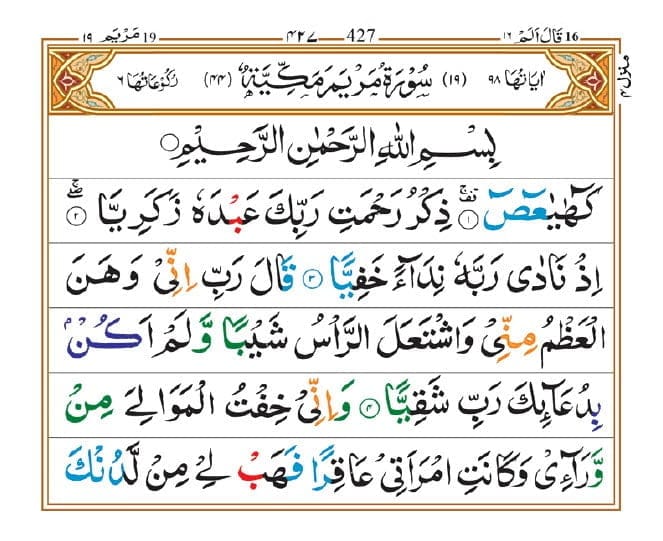 قَالَ اَلَمْ ١٦ 16 427 ٤٢٧ مَرْيَم ١٩ 19
منزل ٤
اٰيَاتُهَا ٩٨ (١٩) سُوْرَةُ مَرْيَمَ مَكِّيَّةٌ (٤٤) رُكُوْعَاتُهَا ٦
بِسْمِ اللهِ الرَّحْمٰنِ الرَّحِيْمِ
كٓهٰيٰعٓصٓ ۚ ١ ذِكْرُ رَحْمَتِ رَبِّكَ عَبْدَهٗ زَكَرِيَّا ۖ ٢
اِذْ نَادٰى رَبَّهٗ نِدَآءً خَفِيًّا ٣ قَالَ رَبِّ اِنِّيْ وَهَنَ
الْعَظْمُ مِنِّيْ وَاشْتَعَلَ الرَّاْسُ شَيْبًا وَّلَمْ اَكُنْۢ
بِدُعَآئِكَ رَبِّ شَقِيًّا ٤ وَاِنِّيْ خِفْتُ الْمَوَالِيَ مِنْ
وَّرَآءِيْ وَكَانَتِ امْرَاَتِيْ عَاقِرًا فَهَبْ لِيْ مِنْ لَّدُنْكَ